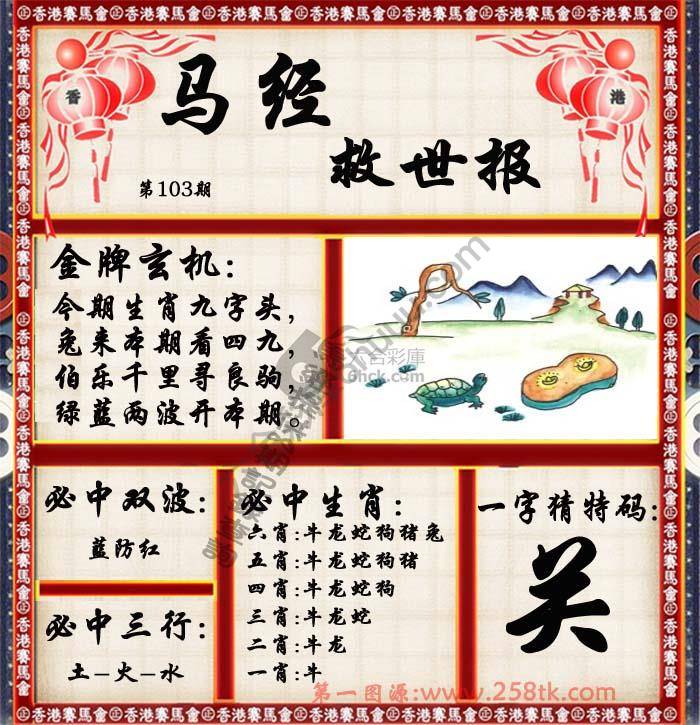 香港賽馬會
香
港
马经
救世报
第103期
金牌玄机：
今期生肖九字头，
兔来本期看四九，
伯乐千里寻良驹，
绿蓝两波开本期。
六合彩庫
必中双波：
蓝防红
必中三行：
土–火–水
必中生肖：
六肖:牛龙蛇狗猪兔
五肖:牛龙蛇狗猪
四肖:牛龙蛇狗
三肖:牛龙蛇
二肖:牛龙
一肖:牛
一字猜特码：
关
第一图源:www.258tk.com